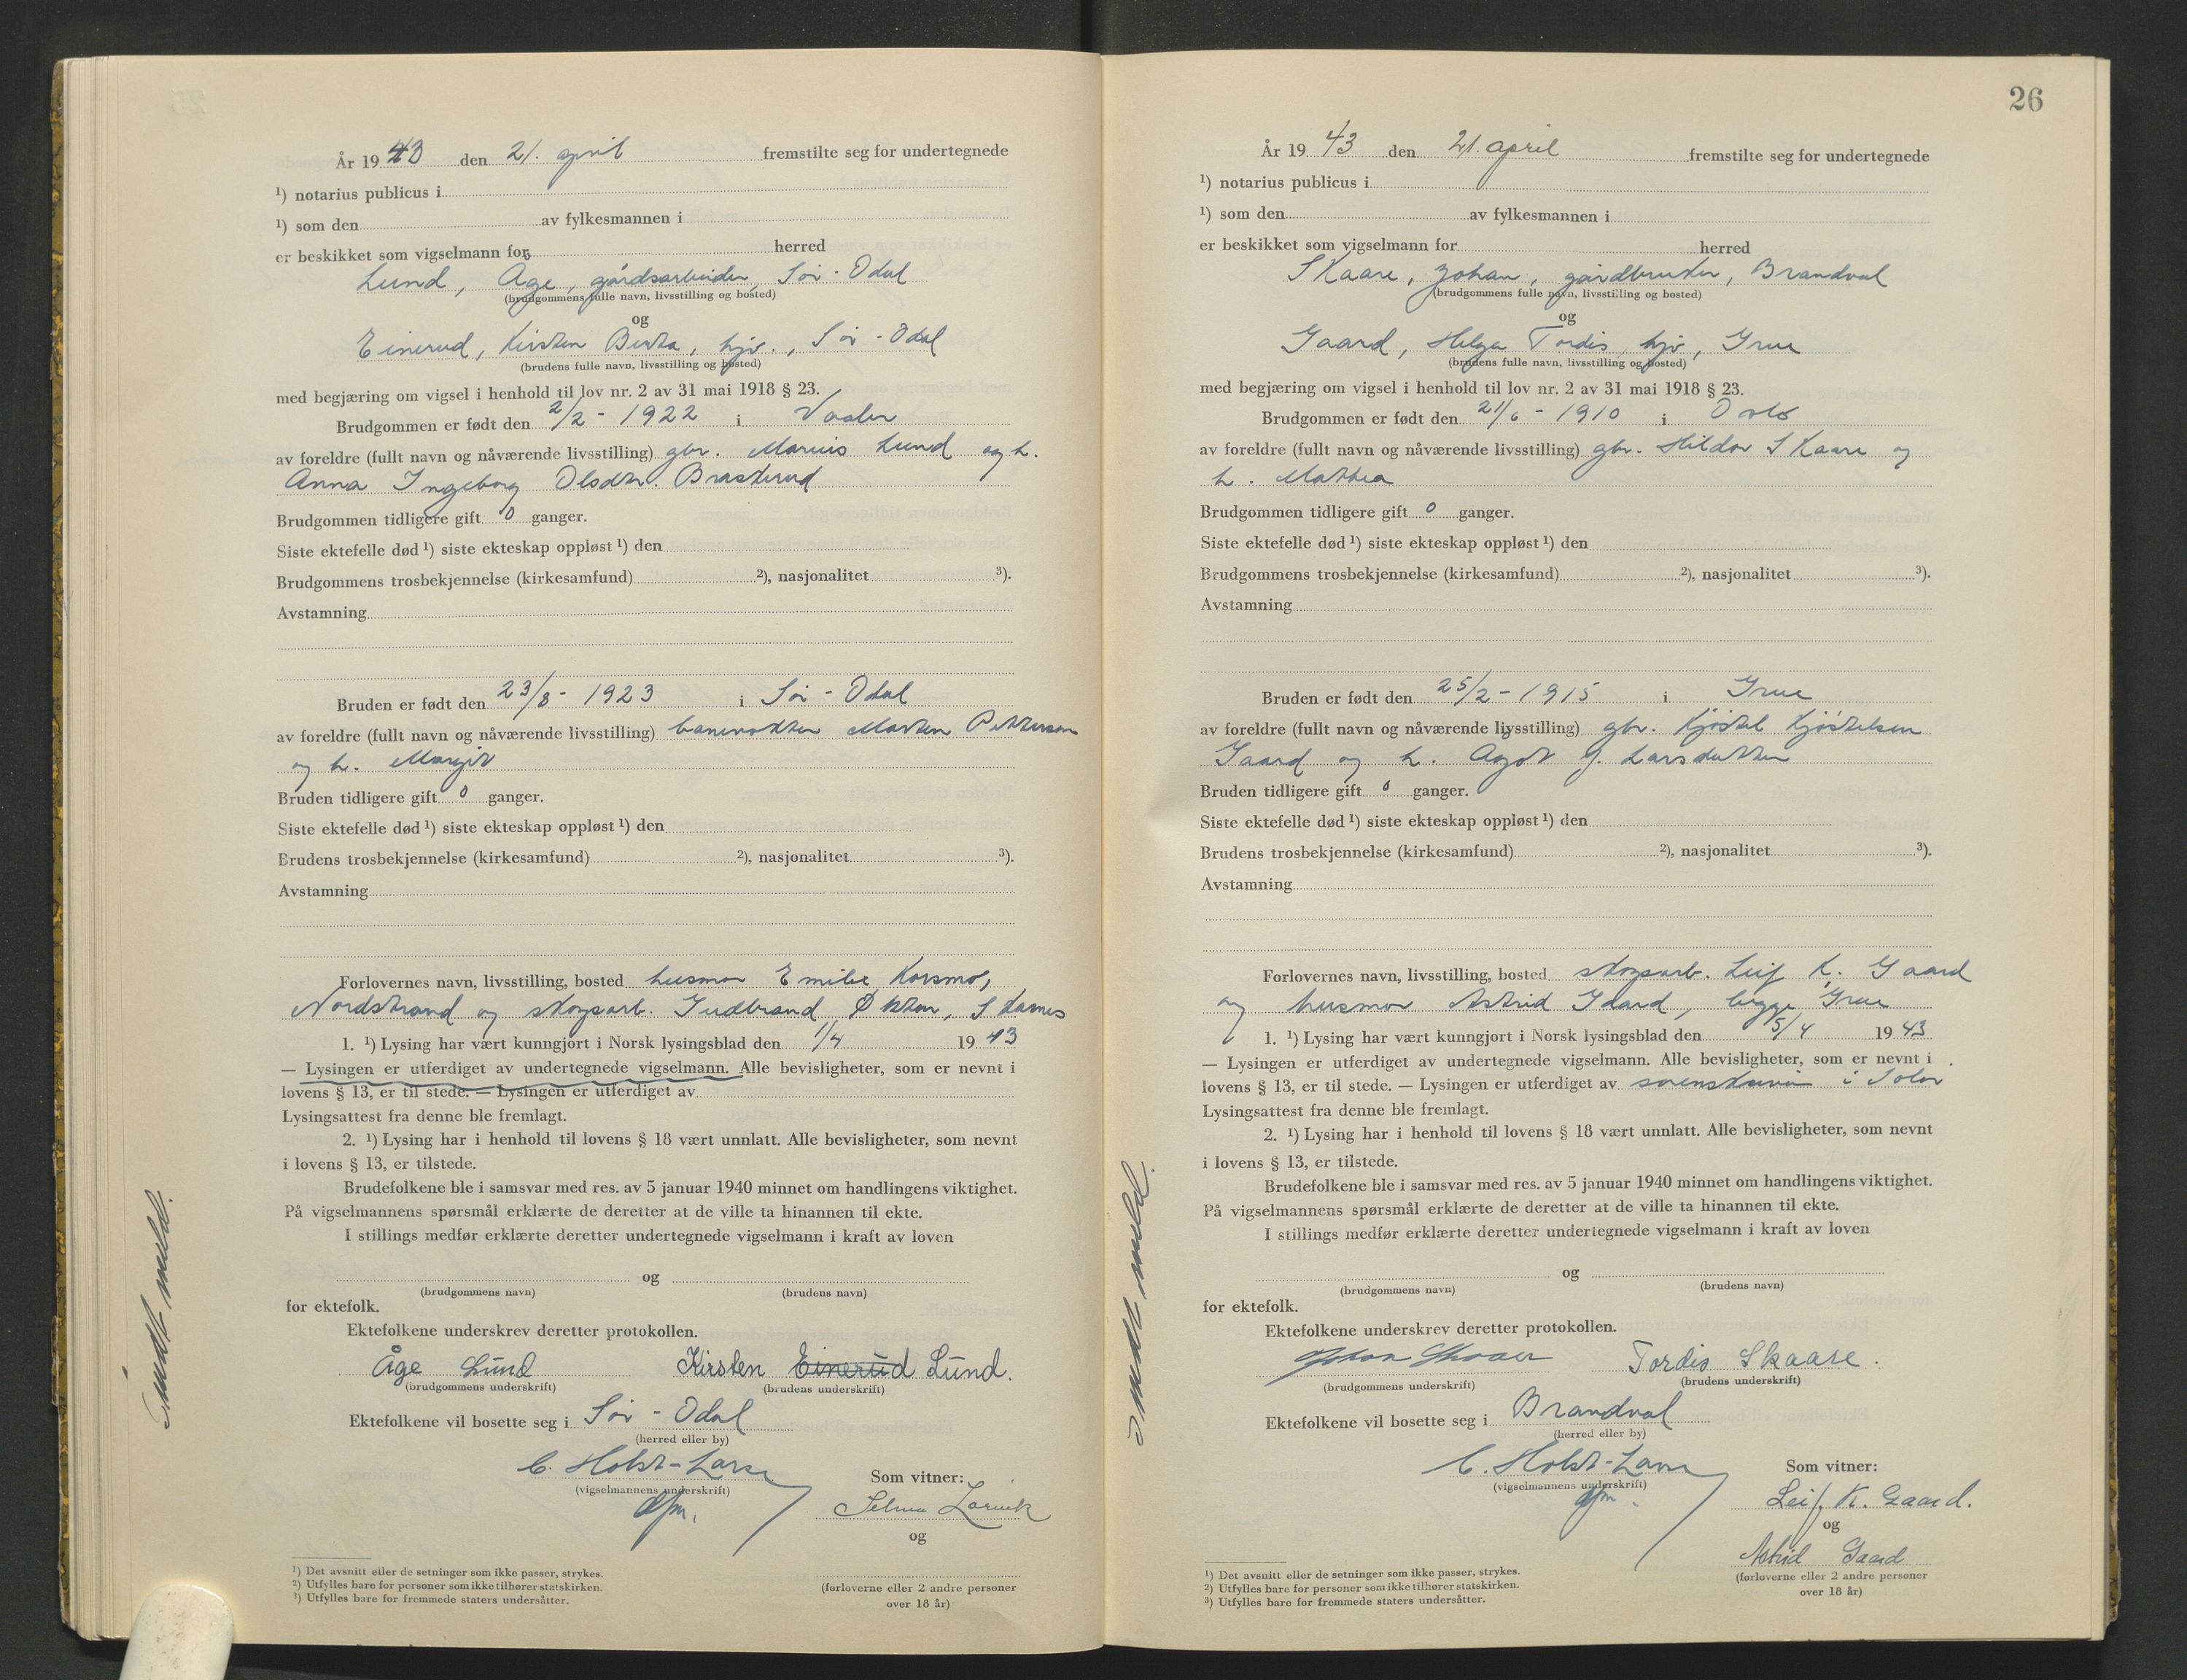 År 19 43 den 21. april fremstilte seg for undertegnede
¹) notarius publicus i
¹) som den av fylkesmannen i
er beskikket som vigselmann for herred
Lund, Åge, gårdsarbeider, Sør-Odal
(brudgommens fulle navn, livsstilling og bosted)
og
Einerud, Kirsten Berta, hjv., Sør-Odal
(brudens fulle navn, livsstilling og bosted)
med begjæring om vigsel i henhold til lov nr. 2 av 31 mai 1918 § 23.
Brudgommen er født den 2/2 - 1922 i Vaaler
av foreldre (fullt navn og nåværende livsstilling) gbr. Marius Lund og h.
Anna Ingeborg Olsdtr. Brasterud
Brudgommen tidligere gift 0 ganger.
Siste ektefelle død ¹) siste ekteskap oppløst ¹) den
Brudgommens trosbekjennelse (kirkesamfund) ²), nasjonalitet ³).
Avstamning
Bruden er født den 23/8 - 1923 i Sør-Odal
av foreldre (fullt navn og nåværende livsstilling) banevokter Marten Pettersen
og h. Margit
Bruden tidligere gift 0 ganger.
Siste ektefelle død ¹) siste ekteskap oppløst ¹) den
Brudens trosbekjennelse (kirkesamfund) ²), nasjonalitet ³).
Avstamning
Forlovernes navn, livsstilling, bosted husmor Emilie Korsmo,
Nordstrand og skogsarb. Gudbrand Økter, Skarnes
1. ¹) Lysing har vært kunngjort i Norsk lysingsblad den 1/4 19 43
— Lysingen er utferdiget av undertegnede vigselmann. Alle bevisligheter, som er nevnt i
lovens § 13, er til stede. — Lysingen er utferdiget av
Lysingsattest fra denne ble fremlagt.
2. ¹) Lysing har i henhold til lovens § 18 vært unnlatt. Alle bevisligheter, som nevnt
i lovens § 13, er tilstede.
Brudefolkene ble i samsvar med res. av 5 januar 1940 minnet om handlingens viktighet.
På vigselmannens spørsmål erklærte de deretter at de ville ta hinannen til ekte.
I stillings medfør erklærte deretter undertegnede vigselmann i kraft av loven
og
(brudgommens navn) (brudens navn)
for ektefolk.
Ektefolkene underskrev deretter protokollen.
Åge Lund Kirsten Einerud Lund.
(brudgommens underskrift) (brudens underskrift)
Ektefolkene vil bosette seg i Sør-Odal
(herred eller by)
C. Holst-Larsen
(vigselmannens underskrift)
dfm.
Som vitner:
Selma
og
(forloverne eller 2 andre personer
over 18 år)
¹) Det avsnitt eller de setninger som ikke passer, strykes.
²) Utfylles bare for personer som ikke tilhører statskirken.
³) Utfylles bare for fremmede staters undersåtter.
Sendt meld.
26
År 19 43 den 21. april fremstilte seg for undertegnede
¹) notarius publicus i
¹) som den av fylkesmannen i
er beskikket som vigselmann for herred
Skaare, Johan, gårdbruker, Brandval
(brudgommens fulle navn, livsstilling og bosted)
og
Gaard, Helga Tordis, hjv, Grue
(brudens fulle navn, livsstilling og bosted)
med begjæring om vigsel i henhold til lov nr. 2 av 31 mai 1918 § 23.
Brudgommen er født den 21/6 - 1910 i Oslo
av foreldre (fullt navn og nåværende livsstilling) gbr. Hildor Skaare og
h. Mathea
Brudgommen tidligere gift 0 ganger.
Siste ektefelle død ¹) siste ekteskap oppløst ¹) den
Brudgommens trosbekjennelse (kirkesamfund) ²), nasjonalitet ³).
Avstamning
Bruden er født den 25/2 - 1915 i Grue
av foreldre (fullt navn og nåværende livsstilling) gbr. Kjøstel Kjøstelsen
Gaard og h. Agot G. Larsdatter
Bruden tidligere gift 0 ganger.
Siste ektefelle død ¹) siste ekteskap oppløst ¹) den
Brudens trosbekjennelse (kirkesamfund) ²), nasjonalitet ³).
Avstamning
Forlovernes navn, livsstilling, bosted skogsarb. Leif K. Gaard
og husmor Astrid Gaard, begge Grue
1. ¹) Lysing har vært kunngjort i Norsk lysingsblad den 5/4 19 43
— Lysingen er utferdiget av undertegnede vigselmann. Alle bevisligheter, som er nevnt i
lovens § 13, er til stede. — Lysingen er utferdiget av sorenskriveren i Solør
Lysingsattest fra denne ble fremlagt.
2. ¹) Lysing har i henhold til lovens § 18 vært unnlatt. Alle bevisligheter, som nevnt
i lovens § 13, er tilstede.
Brudefolkene ble i samsvar med res. av 5 januar 1940 minnet om handlingens viktighet.
På vigselmannens spørsmål erklærte de deretter at de ville ta hinannen til ekte.
I stillings medfør erklærte deretter undertegnede vigselmann i kraft av loven
og
(brudgommens navn) (brudens navn)
for ektefolk.
Ektefolkene underskrev deretter protokollen.
Johan Skaare Tordis Skaare.
(brudgommens underskrift) (brudens underskrift)
Ektefolkene vil bosette seg i Brandval
(herred eller by)
C. Holst-Larsen
(vigselmannens underskrift)
dfm.
Som vitner:
Leif K. Gaard.
og
Astrid Gaard
(forloverne eller 2 andre personer
over 18 år)
¹) Det avsnitt eller de setninger som ikke passer, strykes.
²) Utfylles bare for personer som ikke tilhører statskirken.
³) Utfylles bare for fremmede staters undersåtter.
Sendt meld.